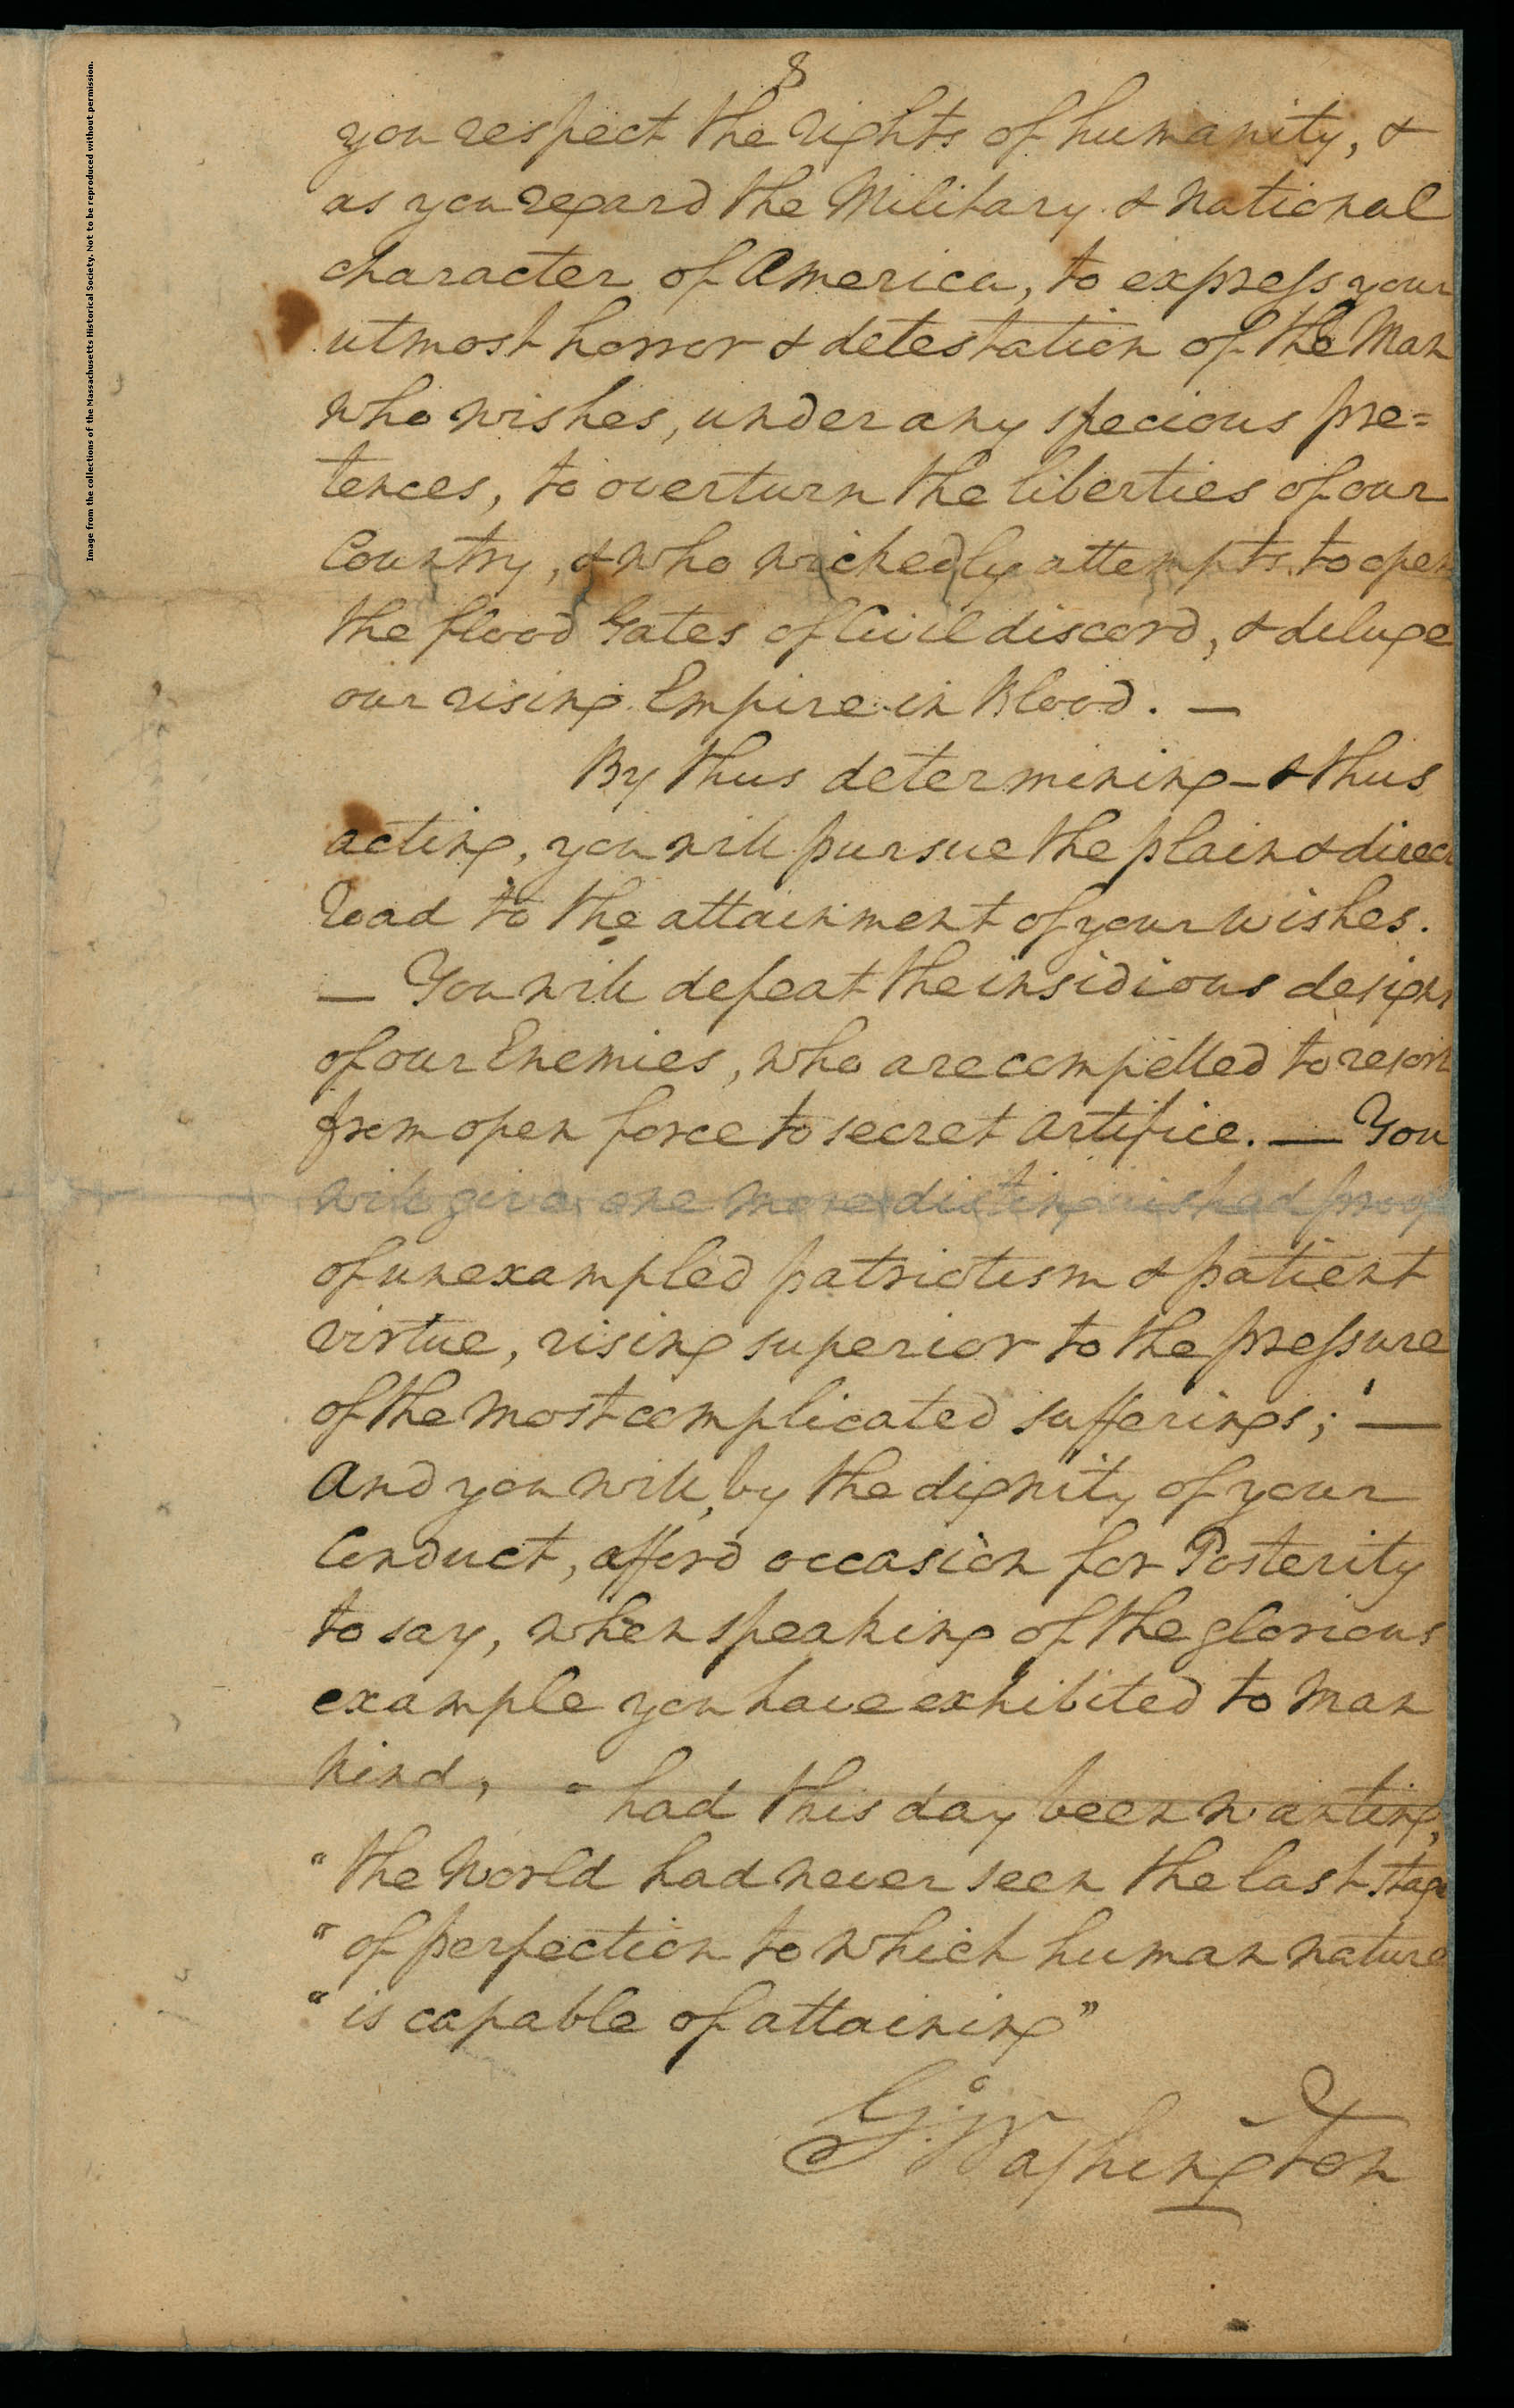 Image from the collections of the Massachusetts Historical Society. Not to be reproduced without permission.
8
you respect the rights of humanity, &
as you regard the Military & national
character of America, to express your
utmost horror & detestation of the Man
who wishes, under any specious pre=
tences, to overturn the liberties of our
Country, & who wickedly attempts to open
the flood Gates of Civil discord, & deluge
our rising Empire in Blood. —
By thus determining — & thus
acting, you will pursue the plain & direct
road to the attainment of your wishes.
— You will defeat the insidious designs
of our Enemies, who are compelled to resort
from open force to secret Artifice. — You
will give one more distinguished proof
of unexampled patriotism & patient
virtue, rising superior to the pressure
of the most complicated sufferings; —
And you will, by the dignity of your
Conduct, afford occasion for Posterity
to say, when speaking of the glorious
example you have exhibited to Man
kind, "had this day been wanting,
"the World had never seen the last stage
"of perfection to which human nature
"is capable of attaining"
Go: Washington